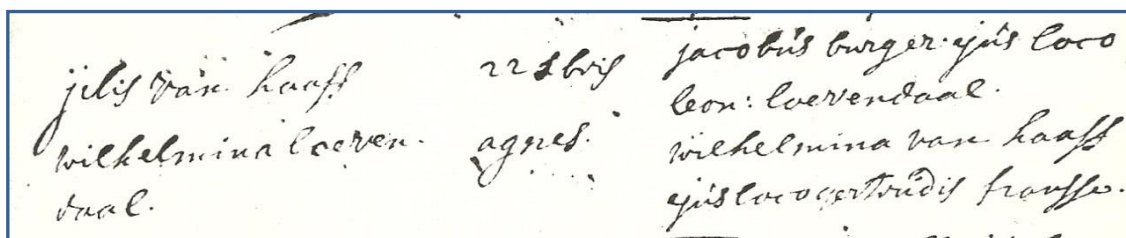 jelis van haaff
wilhelmina loeven.
daal.
22 8bris
agnes.
jacobus burger. ejus loco
leon: loevendaal.
wilhelmina van haaff
ejus loco gertrudis fransse.